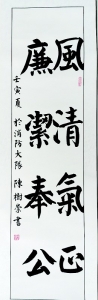 風清氣正
廉潔奉公
壬寅夏於消防大隊陳樹榮書